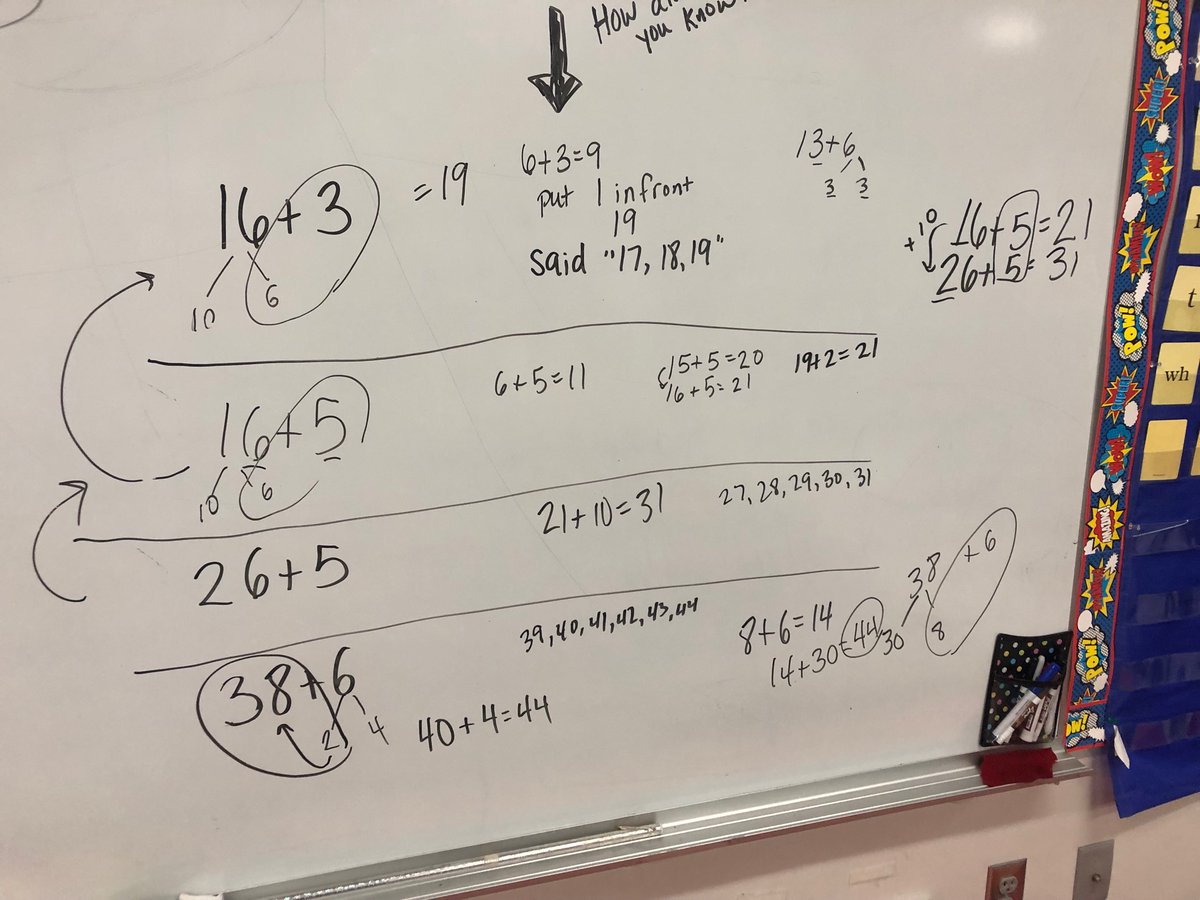 How
you know
16+3
=19
10
6
6+3=9
put 1 in front
19
Said "17, 18, 19"
13+6
3 3
+10
16+5=21
26+5=31
16+5
10
6
6+5=11
15+5=20
16+5=21
19+2=21
26+5
21+10=31
27, 28, 29, 30, 31
38+6
2 4
39, 40, 41, 42, 43, 44
40+4=44
8+6=14
14+30=44
38+6
30
8
POW!
SUPER!
WOW!
POW!
WOW!
POW!
t
wh